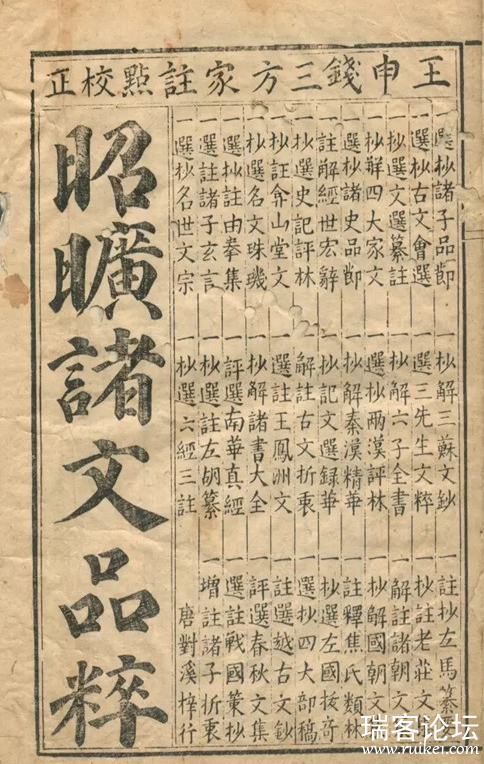 王申錢三方家註點校正
一選抄諸子品節 一抄解三蘇文鈔 一註抄左馬纂
一選抄古文會選 一選三先生文粹 一抄註老莊文
一抄選文選纂註 一抄解六子全書 一解註諸朝文
一抄解四大家文 一選抄兩漢評林 一抄解國朝文
一選抄諸史品節 一抄解秦漢精華 一註釋焦氏類林
一註解經世宏辭 一抄記文選録華 一抄選左國拔奇
一抄選史記評林 一解註古文折衷 一選抄四大部稿
一抄註弇山堂文 一選註王鳳洲文 一註選越古文鈔
一抄選名文珠璣 一抄解諸書大全 一評選春秋文集
一選抄註由拳集 一評選南華真經 一選註戰國策抄
一選註諸子玄言 一抄選註左胡纂 一增註諸子折衷
一選抄名世文宗 一抄選六經三註 唐對溪梓行
昭曠諸文品粹
瑞客论坛
www.ruikei.com